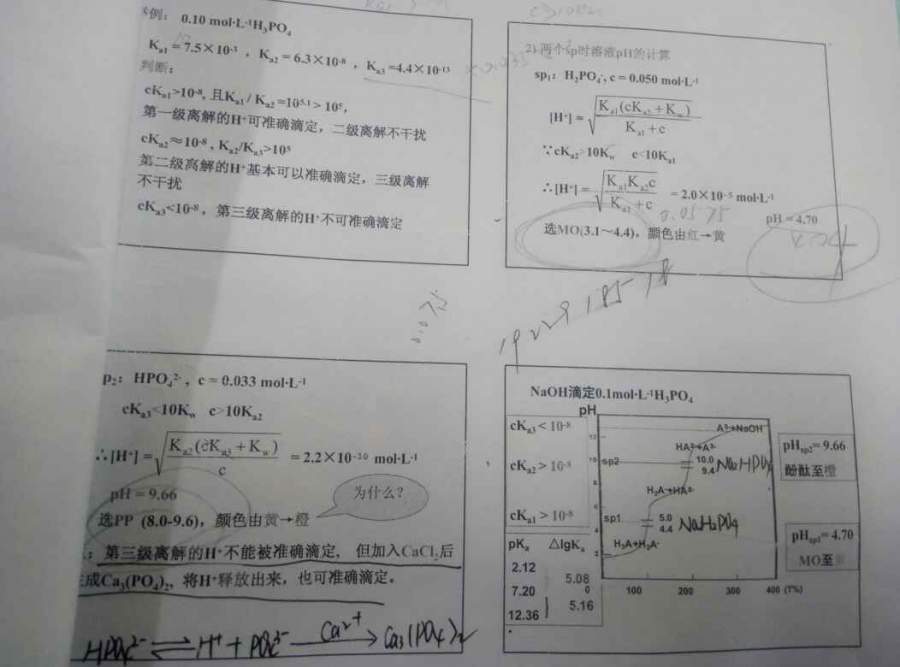 例: 0.10 mol·L⁻¹H₃PO₄
Kₐ₁ = 7.5×10⁻³ , Kₐ₂ = 6.3×10⁻⁸ , Kₐ₃ =4.4×10⁻¹³
判断:
cKₐ₁>10⁻⁸, 且Kₐ₁ / Kₐ₂ =10⁵·¹ > 10⁵,
第一级离解的H⁺可准确滴定，二级离解不干扰
cKₐ₂≈10⁻⁸ , Kₐ₂/Kₐ₃>10⁵
第二级离解的H⁺基本可以准确滴定，三级离解
不干扰
cKₐ₃<10⁻⁸，第三级离解的H⁺不可准确滴定
2) 两个sp时溶液pH的计算
sp₁: H₂PO₄⁻, c = 0.050 mol·L⁻¹
[H⁺] = √(Kₐ₁(cKₐ₂ + Kw) / (Kₐ₁ + c))
∵cKₐ₂>10Kw c<10Kₐ₁
∴[H⁺] = √(Kₐ₁Kₐ₂c / (Kₐ₁ + c)) = 2.0×10⁻⁵ mol·L⁻¹
0.0575
pH = 4.70
选MO(3.1～4.4)，颜色由红→黄
0.075
19 229 185 18
p₂: HPO₄²⁻ , c = 0.033 mol·L⁻¹
cKₐ₃<10Kw c>10Kₐ₂
∴[H⁺] = √(Kₐ₂(cKₐ₃ + Kw) / c) = 2.2×10⁻¹⁰ mol·L⁻¹
pH = 9.66
为什么?
选PP (8.0-9.6)，颜色由黄→橙
: 第三级离解的H⁺不能被准确滴定，但加入CaCl₂后
生成Ca₃(PO₄)₂, 将H⁺释放出来，也可准确滴定。
HPO₄²⁻ ⇌ H⁺ + PO₄³⁻ Ca²⁺→ Ca₃(PO₄)₂
NaOH滴定0.1mol·L⁻¹H₃PO₄
pH
cKₐ₃ < 10⁻⁸
cKₐ₂ > 10⁻⁸
cKₐ₁ > 10⁻⁸
pKₐ ΔlgKₐ
2.12
5.08
7.20
5.16
12.36
12
10
8
6
4
2
0
A³⁻+NaOH
HA²⁻+A³⁻
sp2
10.0
9.4
Na₂HPO₄
H₂A⁻+HA²⁻
sp1
5.0
4.4
NaH₂PO₄
H₃A+H₂A⁻
100 200 300 400 (T%)
pHsp2= 9.66
酚酞至橙
pHsp1= 4.70
MO至黄